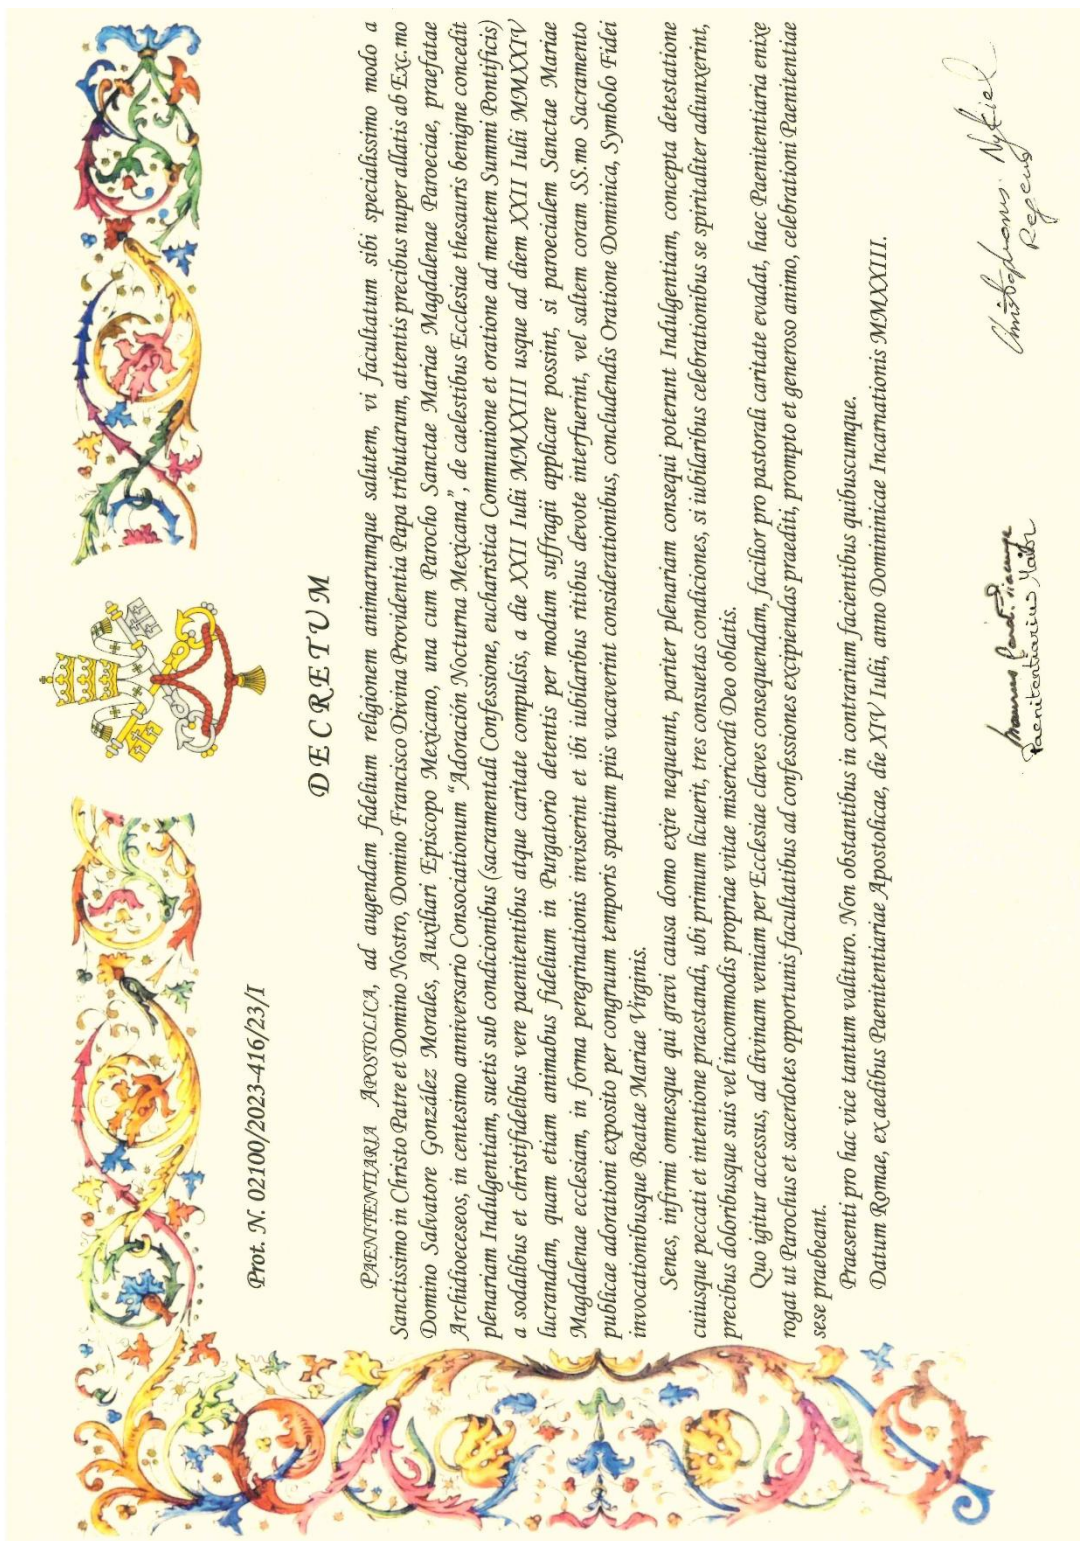 Prot. N. 02100/2023-416/23/I
DECRETUM
PAENITENTIARIA APOSTOLICA, ad augendam fidelium religionem animarumque salutem, vi facultatum sibi specialissimo modo a
Sanctissimo in Christo Patre et Domino Nostro, Domino Francisco Divina Providentia Papa tributarum, attentis precibus nuper allatis ab Exc.mo
Domino Salvatore González Morales, Auxiliari Episcopo Mexicano, una cum Parocho Sanctae Mariae Magdalenae Paroeciae, praefatae
Archidioeceseos, in centesimo anniversario Consociationum “Adoración Nocturna Mexicana”, de caelestibus Ecclesiae thesauris benigne concedit
plenariam Indulgentiam, suetis sub condicionibus (sacramentali Confessione, eucharistica Communione et oratione ad mentem Summi Pontificis)
a sodalibus et christifidelibus vere paenitentibus atque caritate compulsis, a die XXII Iulii MMXXIII usque ad diem XXII Iulii MMXXIV
lucrandam, quam etiam animabus fidelium in Purgatorio detentis per modum suffragii applicare possint, si paroecialem Sanctae Mariae
Magdalenae ecclesiam, in forma peregrinationis inviserint et ibi iubilaribus ritibus devote interfuerint, vel saltem coram SS.mo Sacramento
publicae adorationi exposito per congruum temporis spatium piis vacaverint considerationibus, concludendis Oratione Dominica, Symbolo Fidei
invocationibusque Beatae Mariae Virginis.
Senes, infirmi omnesque qui gravi causa domo exire nequeunt, pariter plenariam consequi poterunt Indulgentiam, concepta detestatione
cuiusque peccati et intentione praestandi, ubi primum licuerit, tres consuetas condiciones, si iubilaribus celebrationibus se spiritaliter adiunxerint,
precibus doloribusque suis vel incommodis propriae vitae misericordi Deo oblatis.
Quo igitur accessus, ad divinam veniam per Ecclesiae claves consequendam, facilior pro pastorali caritate evadat, haec Paenitentiaria enixe
rogat ut Parochus et sacerdotes opportunis facultatibus ad confessiones excipiendas praediti, prompto et generoso animo, celebrationi Paenitentiae
sese praebeant.
Praesenti pro hac vice tantum valituro. Non obstantibus in contrarium facientibus quibuscumque.
Datum Romae, ex aedibus Paenitentiariae Apostolicae, die XIV Iulii, anno Dominicae Incarnationis MMXXIII.
Maurus Card. Piacenza
Paenitentiarius Maior
Christophorus Nykiel
Regens